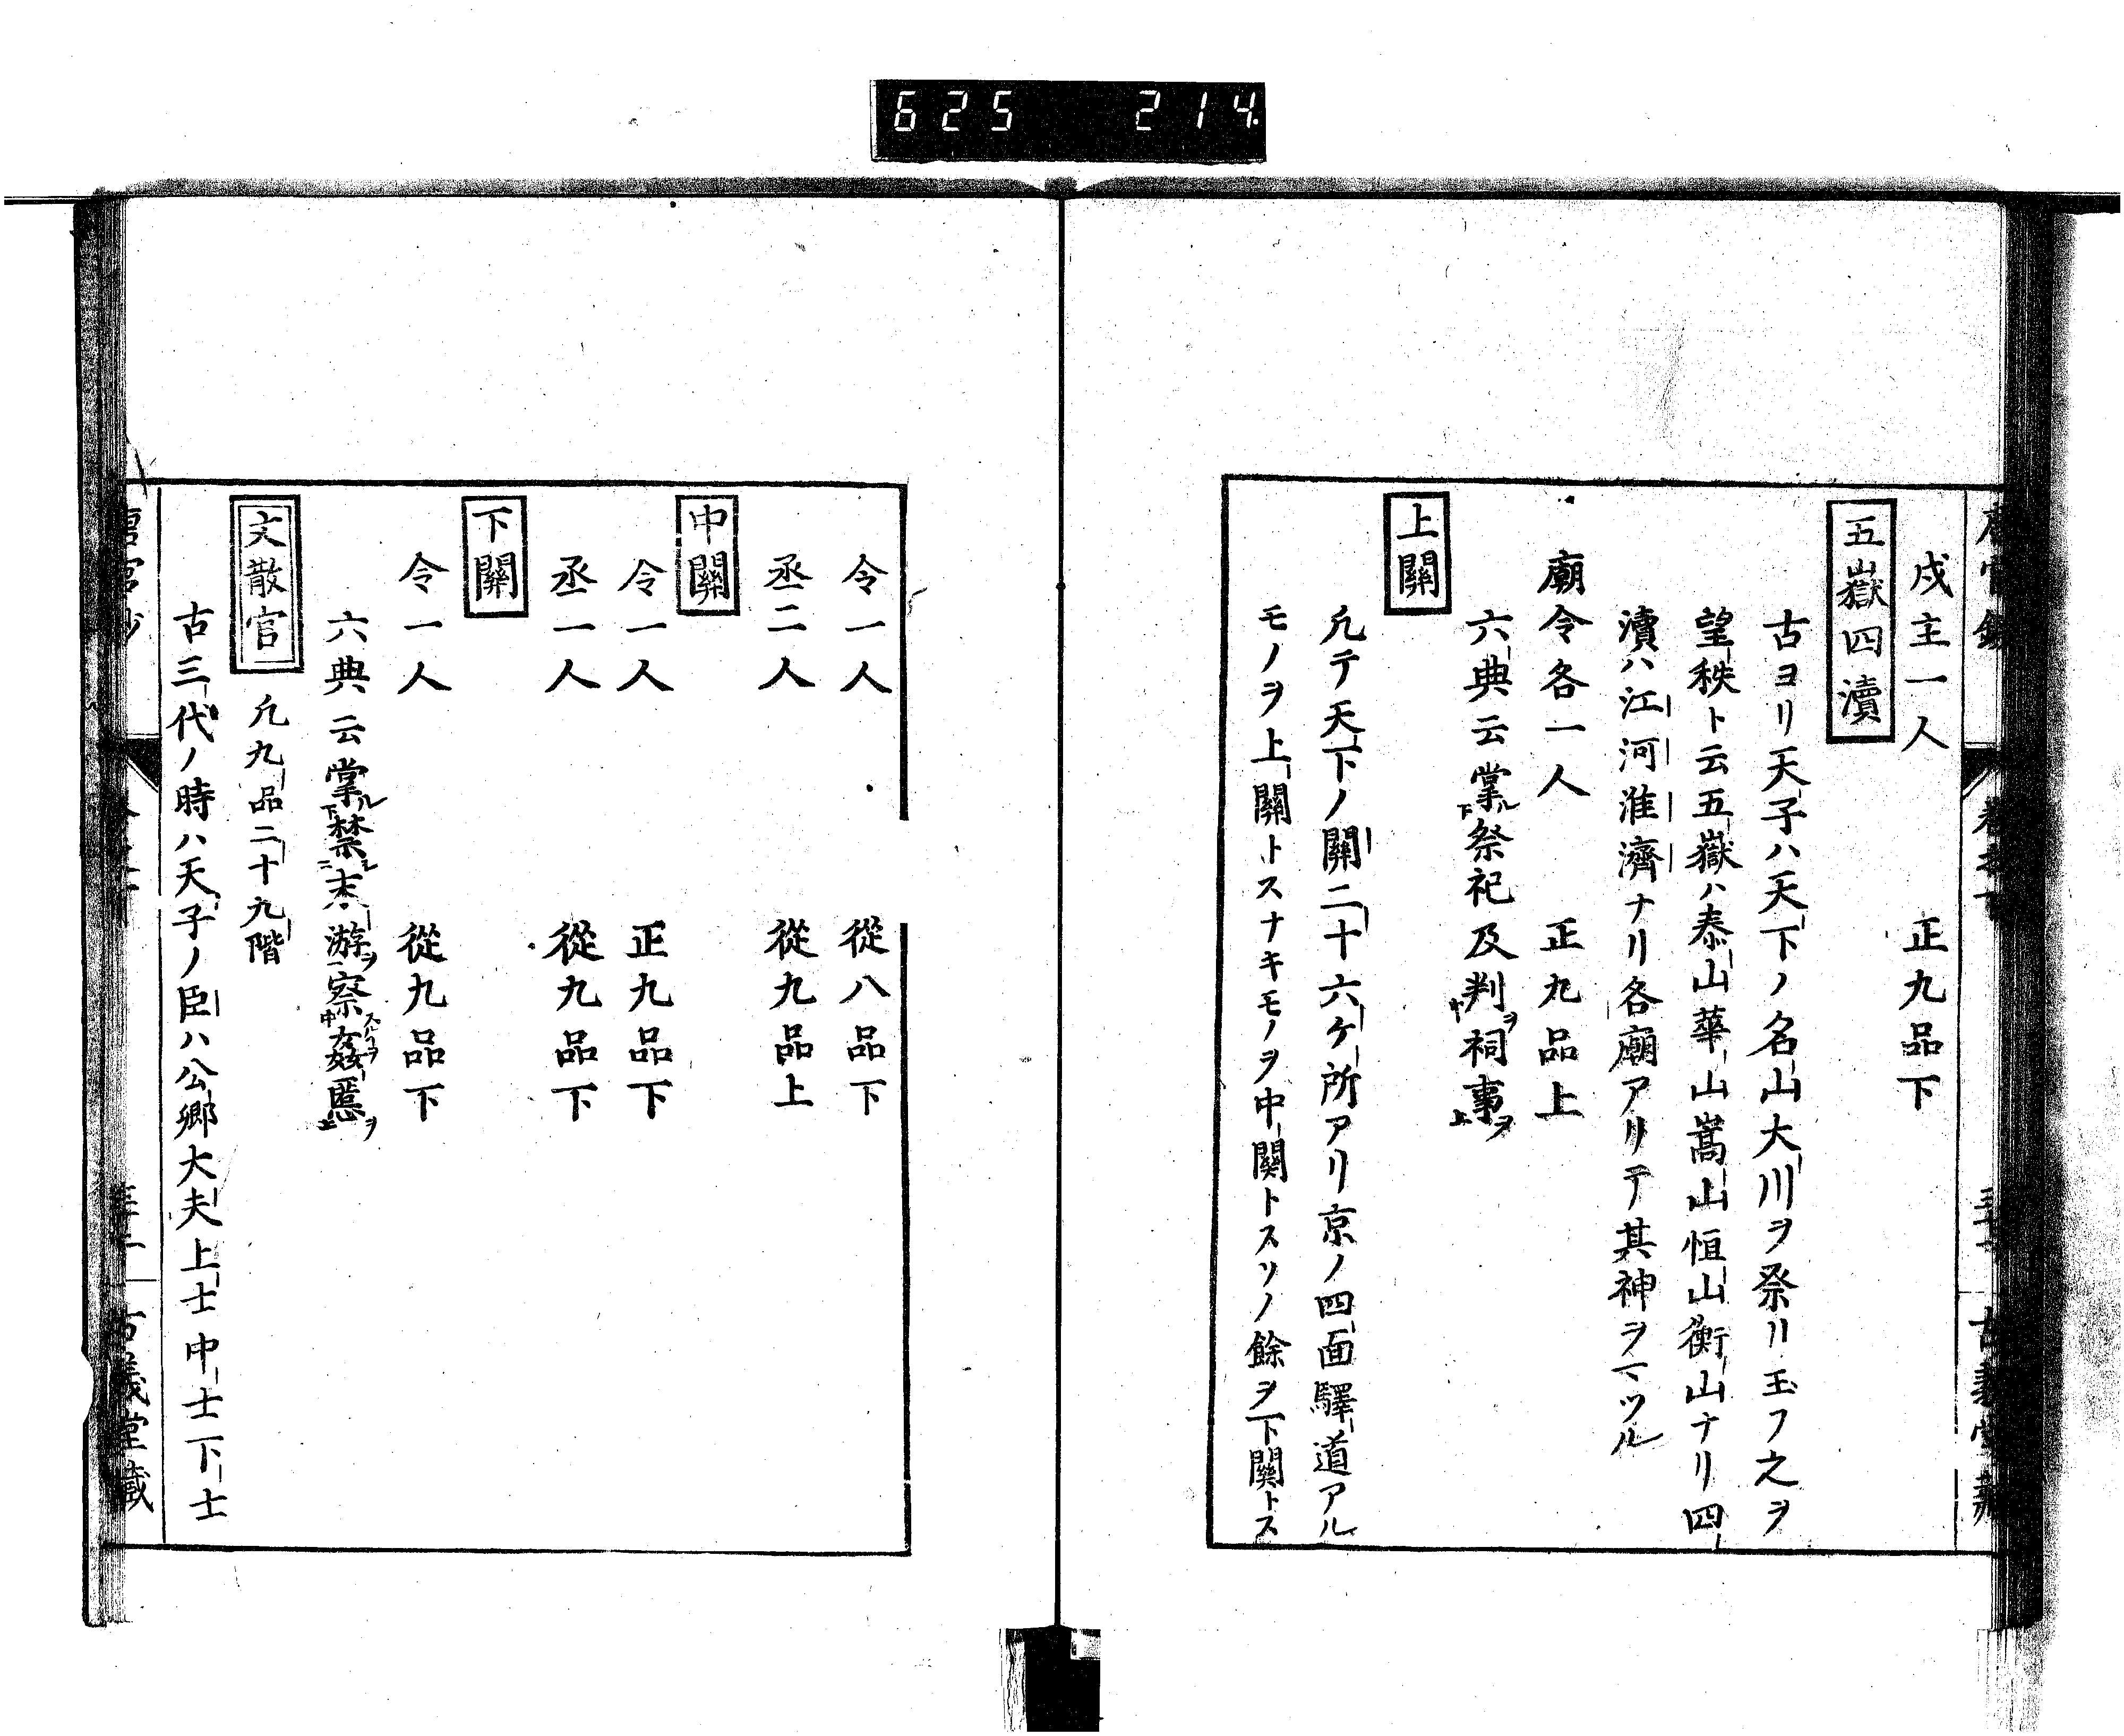 625 214
戍主一人 正九品下
五嶽四瀆
古ヨリ天子ハ天下ノ名山大川ヲ祭リ玉フ之ヲ
望秩ト云五嶽ハ泰山華山嵩山恒山衡山ナリ四
瀆ハ江河淮濟ナリ各廟アリテ其神ヲマツル
廟令各一人 正九品上
六典云掌ル下祭祀及判ヲ中祠事ヲ上
上關
凢テ天下ノ關二十六ケ所アリ京ノ四面驛道アル
モノヲ上關トスナキモノヲ中關トスソノ餘ヲ下關トス
令一人 從八品下
丞二人 從九品上
中關
令一人 正九品下
丞一人 從九品下
下關
令一人 從九品下
六典云掌ル下禁シ二末游ヲ一察スルヿヲ中姦慝ヲ上
文散官 凢九品二十九階
古三代ノ時ハ天子ノ臣ハ公卿大夫上士中士下士
古義堂藏